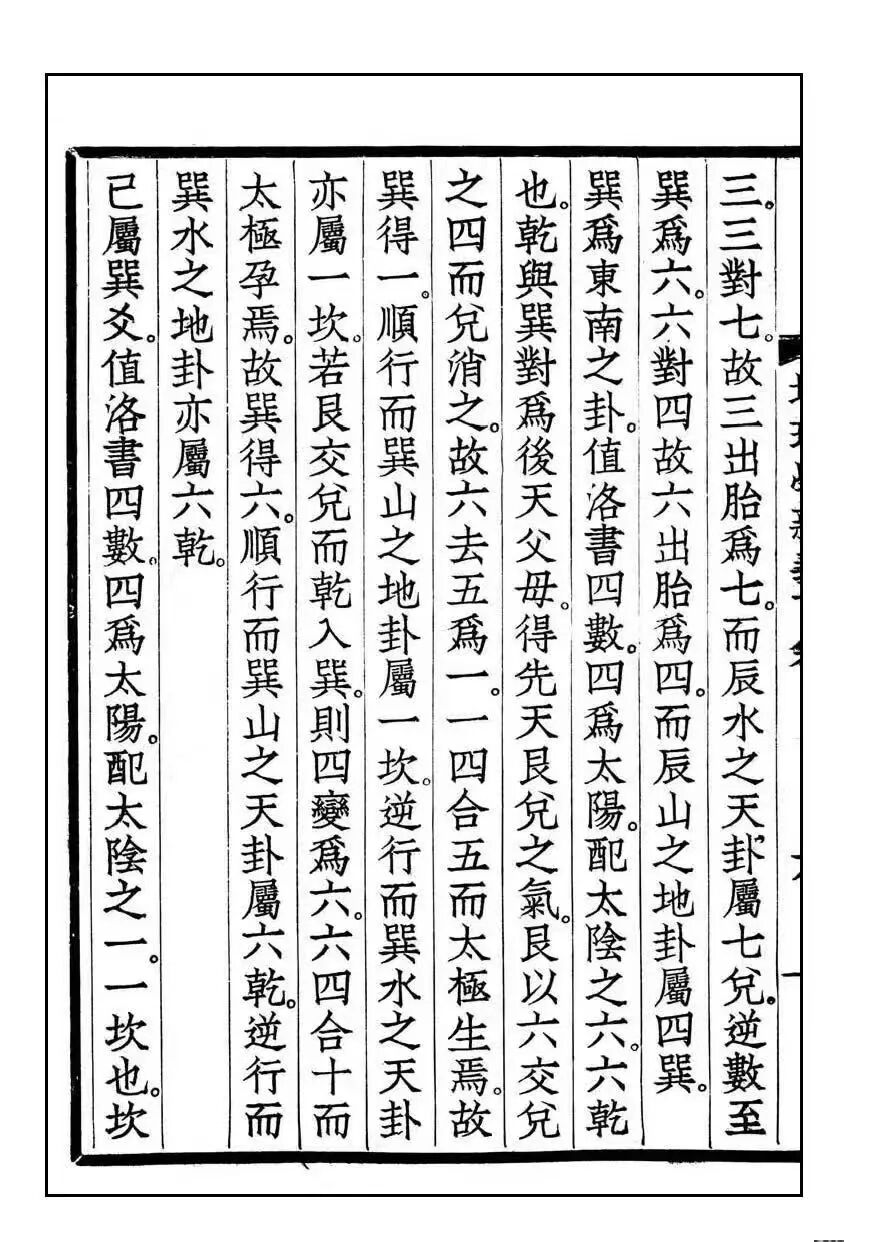 三。三對七。故三出胎爲七。而辰水之天卦屬七兌。逆數至
巽爲六。六對四故六出胎爲四。而辰山之地卦屬四巽。
巽爲東南之卦。值洛書四數。四爲太陽。配太陰之六。六乾
也。乾與巽對爲後天父母。得先天艮兌之氣。艮以六交兌
之四而兌消之。故六去五爲一。一四合五而太極生焉。故
巽得一。順行而巽山之地卦屬一坎。逆行而巽水之天卦
亦屬一坎。若艮交兌而乾入巽。則四變爲六。六四合十而
太極孕焉。故巽得六。順行而巽山之天卦屬六乾。逆行而
巽水之地卦亦屬六乾。
已屬巽爻。值洛書四數。四爲太陽。配太陰之一。一坎也。坎